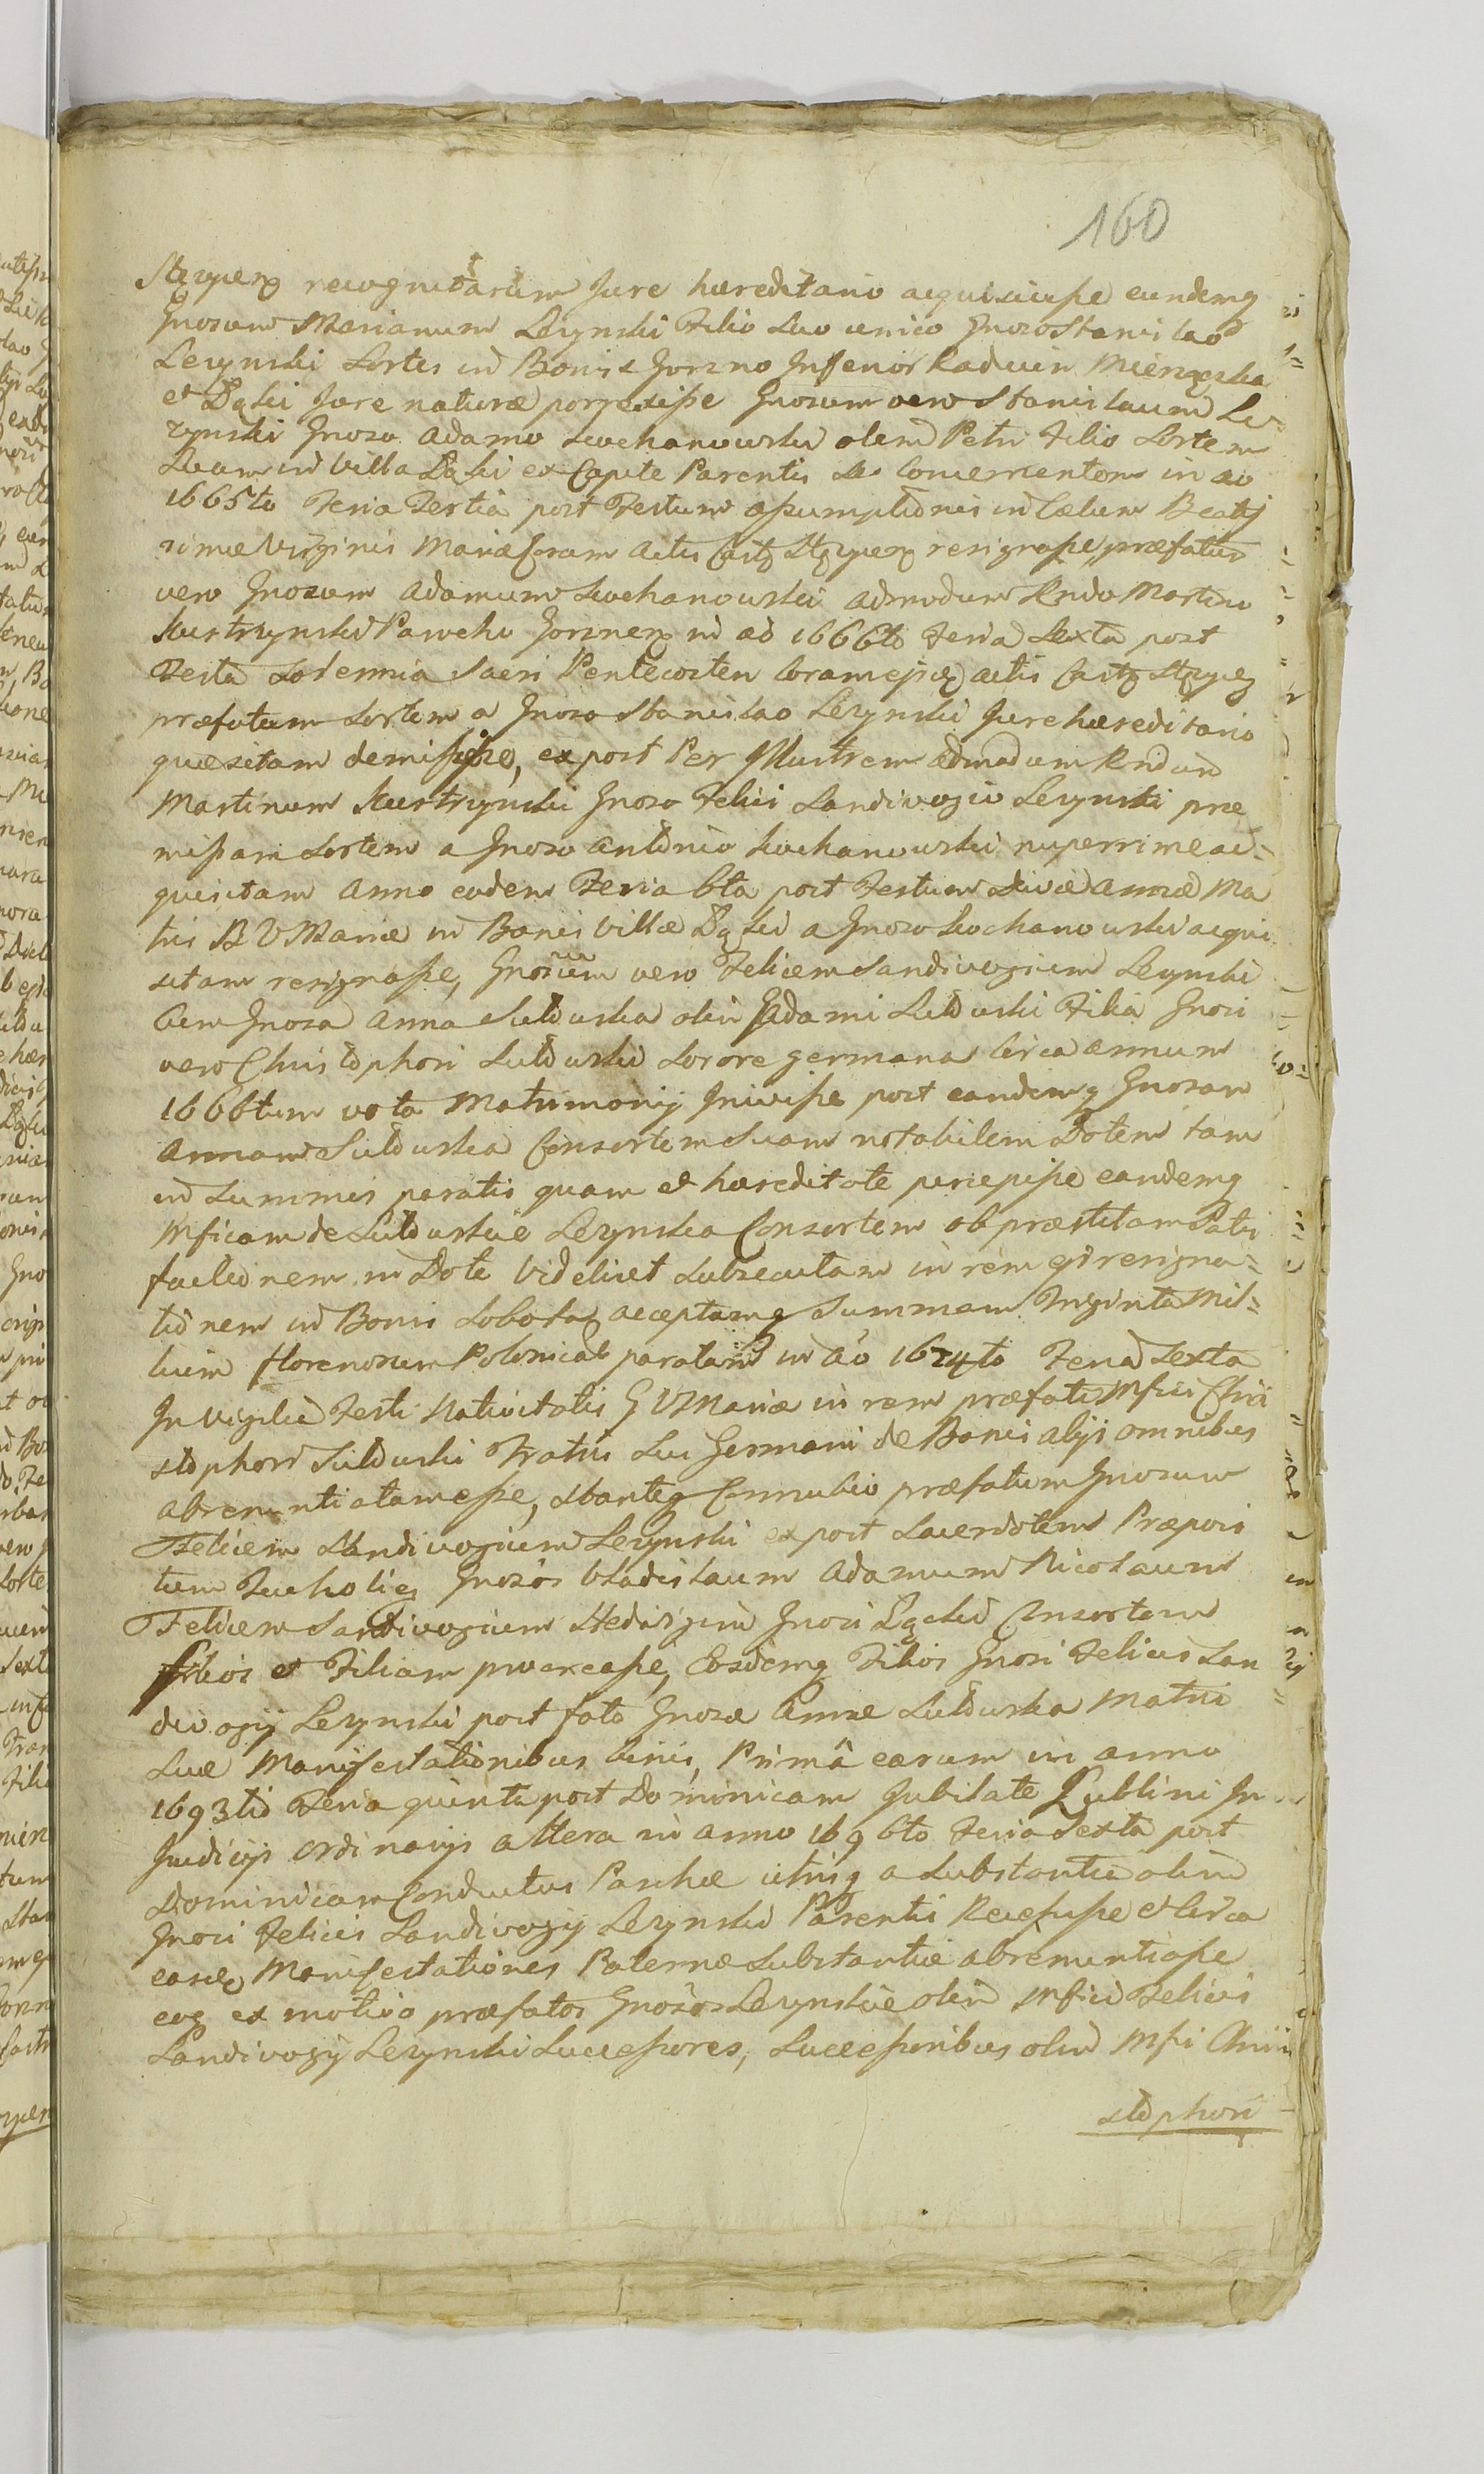 160
Stężycen recognitarum Jure hæreditario acquisivisse eundemq
Gnosum Marianum Lezynski Filio Suo unico Gnoso Stanislao
Lezynski Sortes in Bonis Gorzno Inferior Radwin Mierzączka
et Dąbki Jure naturæ porrexisse Gnosum vero Stanislaum Le
zynski Gnoso Adamo Kochanowski olim Petri Filio Sortem
Suam in Villa Dąbki ex Capite Parentis Se Concernentem in ao
1665to Feria Tertia post Festum assumptionis in Cælum Beatis
simæ Virginis Mariæ Coram Actis Castr Stężycen resignasse, præfatum
vero Gnosum Adamum Kochanowski admodum Rndo Martino
Kustrzynski Parocho Gorznen in ao 1666to Feria Sexta post
Festa Solennia Sacri Pentecosten Coram ejsdē actis Castr Stężycen
præfatam Sortem a Gnoso Stanislao Lezynski Jure hæreditario
quæsitam demisisse, ex post Per Illustrem admodum Rndum
Martinum Kustrzynski Gnoso Felici Sandivogio Lezynski præ
missam Sortem a Gnoso Antonio Kochanowski nuperrime ac=
quisitam anno eodem Feria 6ta post Festum Divæ Annæ Ma
tris B V Mariæ in Bonis Villæ Dąbki a Gnoso Kochanowski acqui
sitam resignasse, Gnosum vero Felicem Sandivogium Lezynski
Cum Gnosa Anna Sulowska olim Adami Sulowski Filia Gnosi
vero Christophori Sulowski Sorore germana Circa annum
1666tum vota Matrimonij Inivisse post eandemq Gnosam
Annam Sulowska Consortem Suam notabilem Dotem tam
in Summis paratis quam et hæreditate percepisse eandemq
Mficam de Sulowskie Lezynska Consortem ob præstitam Satis
factionem in Dote videlicet Subsecutam in rem ejs resigna=
tionem in Bonis Sobota acceptamq Summam Triginta Mil=
lium florenorum Polonical paratam in ao 1674to Feria Sexta
In Vigilia Festi Nativitatis G V Mariæ in rem præfati Mfici Chri
stophori Sulowski Fratris Sui Germani de Bonis alijs omnibus
abrenuntiatam esse, Stanteq Connubio præfatum Gnosum
Felicem Sandivogium Lezynski ex post Sacerdotem Præposi
tum Gnosos Vladislaum Adamum Nicolaum
Felicem Sandivogium Hedvigim Gnosi Consortem
filios et Filiam procreasse, Eosdemq Filios Gnosi Felicis San
divogij Lezynski post fata Gnosæ Annæ Sulowska Matris
Suæ Manifestationibus binis, Primâ earum in anno
1693tio Feria quinta post Dominicam Jubilate Lublini In
Judicijs ordinarijs altera in anno 1696to Feria Sexta post
Dominicam Conductus Paschæ itidq a Substantia olim
Gnosi Felicis Sandivogij Lezynski Parentis Recessisse et Circa
easdē Manifestationes Paternæ Substantiæ abrenuntiasse
eoq ex motivo præfatos Gnosos Lezynskie olim Mfici Felicis
Sandivogij Lezynski Successores, Successoribus olim Mfci Chri
stophori